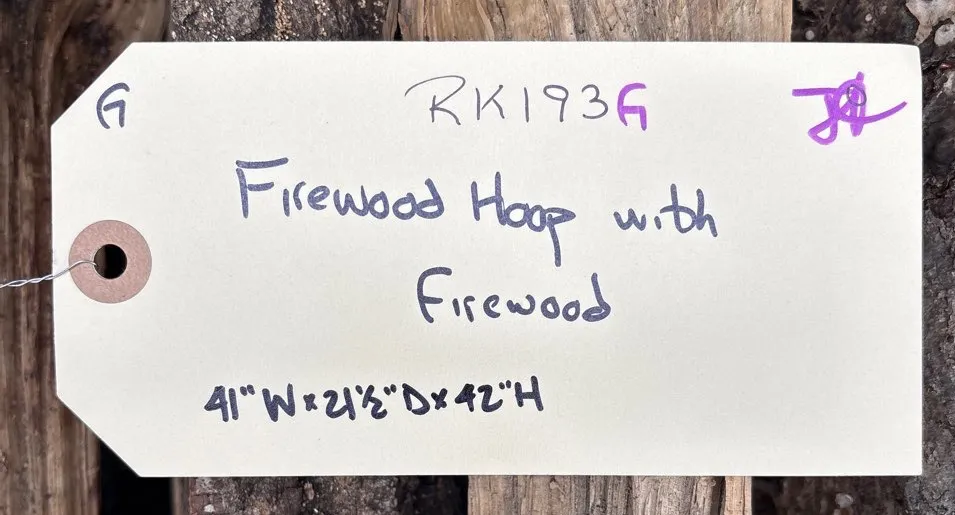 G RK193G
Firewood Hoop with
Firewood
41" W x 21 1/2" D x 42" H